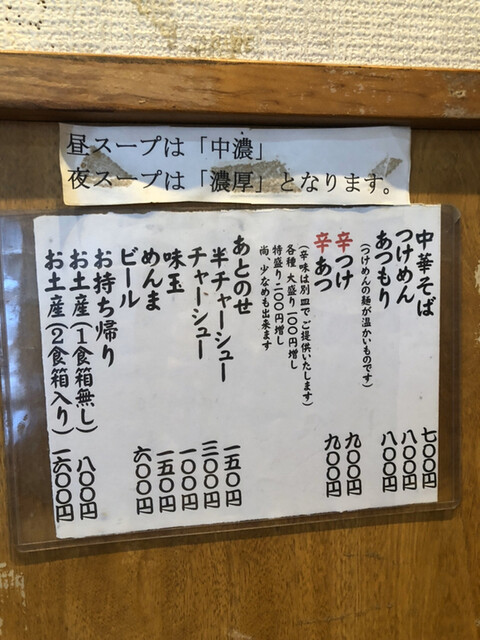 昼スープは「中濃」
夜スープは「濃厚」となります。
中華そば 七〇〇円
つけめん 八〇〇円
あつもり 八〇〇円
(つけめんの麺が温かいものです)
辛つけ 九〇〇円
辛あつ 九〇〇円
(辛味は別皿でご提供いたします)
各種 大盛り一〇〇円増し
特盛り二〇〇円増し
尚 少なめも出来ます
あとのせ
半チャーシュー 一五〇円
チャーシュー 三〇〇円
味玉 一〇〇円
めんま 一五〇円
ビール 六〇〇円
お持ち帰り
お土産(1食箱無し) 八〇〇円
お土産(2食箱入り) 一六〇〇円